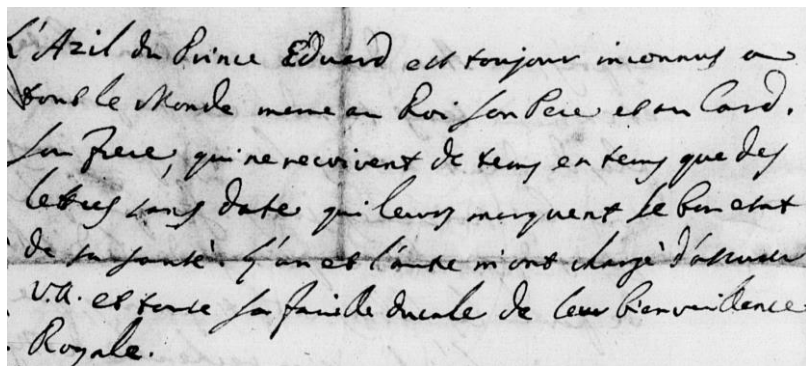 L'Azil du Prince Eduard est toujour inconnus a
tout le Monde meme au Roi son Pere et au Card.
son frere, qui ne recoivent de tems en tems que des
lettres sans date qui leurs marquent le bon etat
de sa santè. L'un et l'autre m'ont chargè d'assurer
V.A. et toute sa famille ducale de leur bienveillence
Royale.